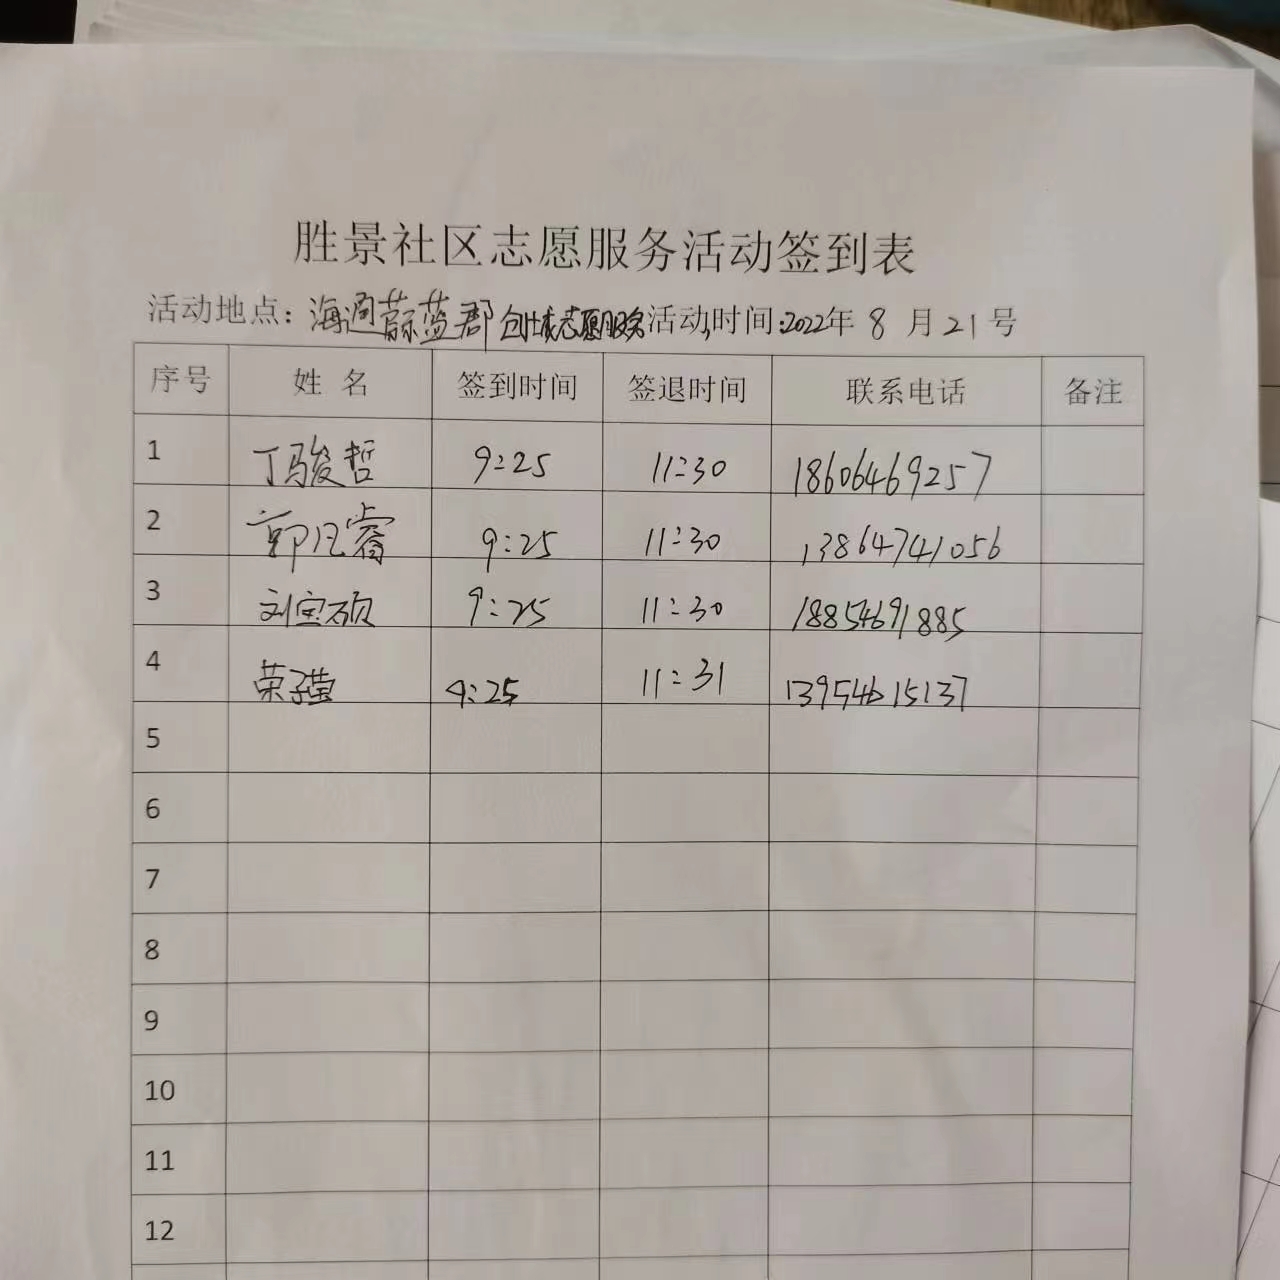 胜景社区志愿服务活动签到表
活动地点：海通蔚蓝郡 创城志愿服务 活动时间：2022年 8 月 21 号
序号 姓 名 签到时间 签退时间 联系电话 备注
1 丁骏哲 9:25 11:30 18606469257
2 郭凡睿 9:25 11:30 13864741056
3 刘宝硕 9:25 11:30 18854691885
4 荣子莹 9:25 11:31 13954615137
5
6
7
8
9
10
11
12